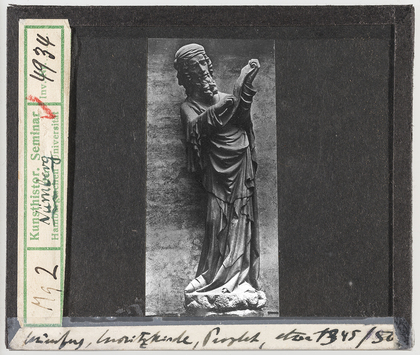 Kunsthistor. Seminar
Hamburgischen Universität
Inv. 4934
Nürnberg
Mg 2
Nürnberg, Moritzkirche, Prophet, etwa 1345/50